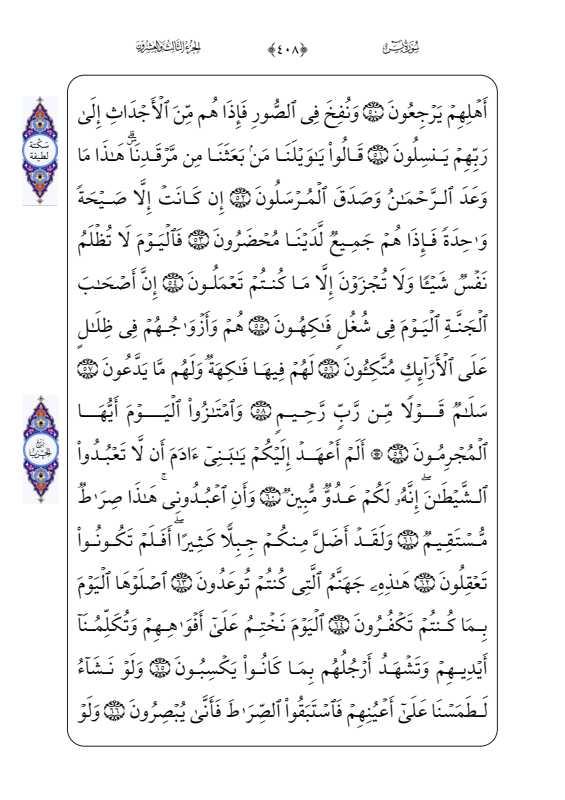 سُورَةُ يسٓ
﴿٤٠٨﴾
الجُزءُ الثَّالِثُ وَالعِشْرُونَ
أَهْلِهِمْ يَرْجِعُونَ ٥٠ وَنُفِخَ فِى ٱلصُّورِ فَإِذَا هُم مِّنَ ٱلْأَجْدَاثِ إِلَىٰ
سَكْتَة
لَطيفَة
رَبِّهِمْ يَنسِلُونَ ٥١ قَالُوا۟ يَـٰوَيْلَنَا مَنۢ بَعَثَنَا مِن مَّرْقَدِنَاۜۗ هَـٰذَا مَا
وَعَدَ ٱلرَّحْمَـٰنُ وَصَدَقَ ٱلْمُرْسَلُونَ ٥٢ إِن كَانَتْ إِلَّا صَيْحَةً
وَٰحِدَةً فَإِذَا هُمْ جَمِيعٌ لَّدَيْنَا مُحْضَرُونَ ٥٣ فَٱلْيَوْمَ لَا تُظْلَمُ
نَفْسٌ شَيْـًٔا وَلَا تُجْزَوْنَ إِلَّا مَا كُنتُمْ تَعْمَلُونَ ٥٤ إِنَّ أَصْحَـٰبَ
ٱلْجَنَّةِ ٱلْيَوْمَ فِى شُغُلٍ فَـٰكِهُونَ ٥٥ هُمْ وَأَزْوَٰجُهُمْ فِى ظِلَـٰلٍ
عَلَى ٱلْأَرَآئِكِ مُتَّكِـُٔونَ ٥٦ لَهُمْ فِيهَا فَـٰكِهَةٌ وَلَهُم مَّا يَدَّعُونَ ٥٧
سَلَـٰمٌ قَوْلًا مِّن رَّبٍّ رَّحِيمٍ ٥٨ وَٱمْتَـٰزُوا۟ ٱلْيَوْمَ أَيُّهَا
ٱلْمُجْرِمُونَ ٥٩ ۞ أَلَمْ أَعْهَدْ إِلَيْكُمْ يَـٰبَنِىٓ ءَادَمَ أَن لَّا تَعْبُدُوا۟
رُبْع
الحِزْب
ٱلشَّيْطَـٰنَۖ إِنَّهُۥ لَكُمْ عَدُوٌّ مُّبِينٌ ٦٠ وَأَنِ ٱعْبُدُونِىۚ هَـٰذَا صِرَٰطٌ
مُّسْتَقِيمٌ ٦١ وَلَقَدْ أَضَلَّ مِنكُمْ جِبِلًّا كَثِيرًاۖ أَفَلَمْ تَكُونُوا۟
تَعْقِلُونَ ٦٢ هَـٰذِهِۦ جَهَنَّمُ ٱلَّتِى كُنتُمْ تُوعَدُونَ ٦٣ ٱصْلَوْهَا ٱلْيَوْمَ
بِمَا كُنتُمْ تَكْفُرُونَ ٦٤ ٱلْيَوْمَ نَخْتِمُ عَلَىٰٓ أَفْوَٰهِهِمْ وَتُكَلِّمُنَآ
أَيْدِيهِمْ وَتَشْهَدُ أَرْجُلُهُم بِمَا كَانُوا۟ يَكْسِبُونَ ٦٥ وَلَوْ نَشَآءُ
لَطَمَسْنَا عَلَىٰٓ أَعْيُنِهِمْ فَٱسْتَبَقُوا۟ ٱلصِّرَٰطَ فَأَنَّىٰ يُبْصِرُونَ ٦٦ وَلَوْ